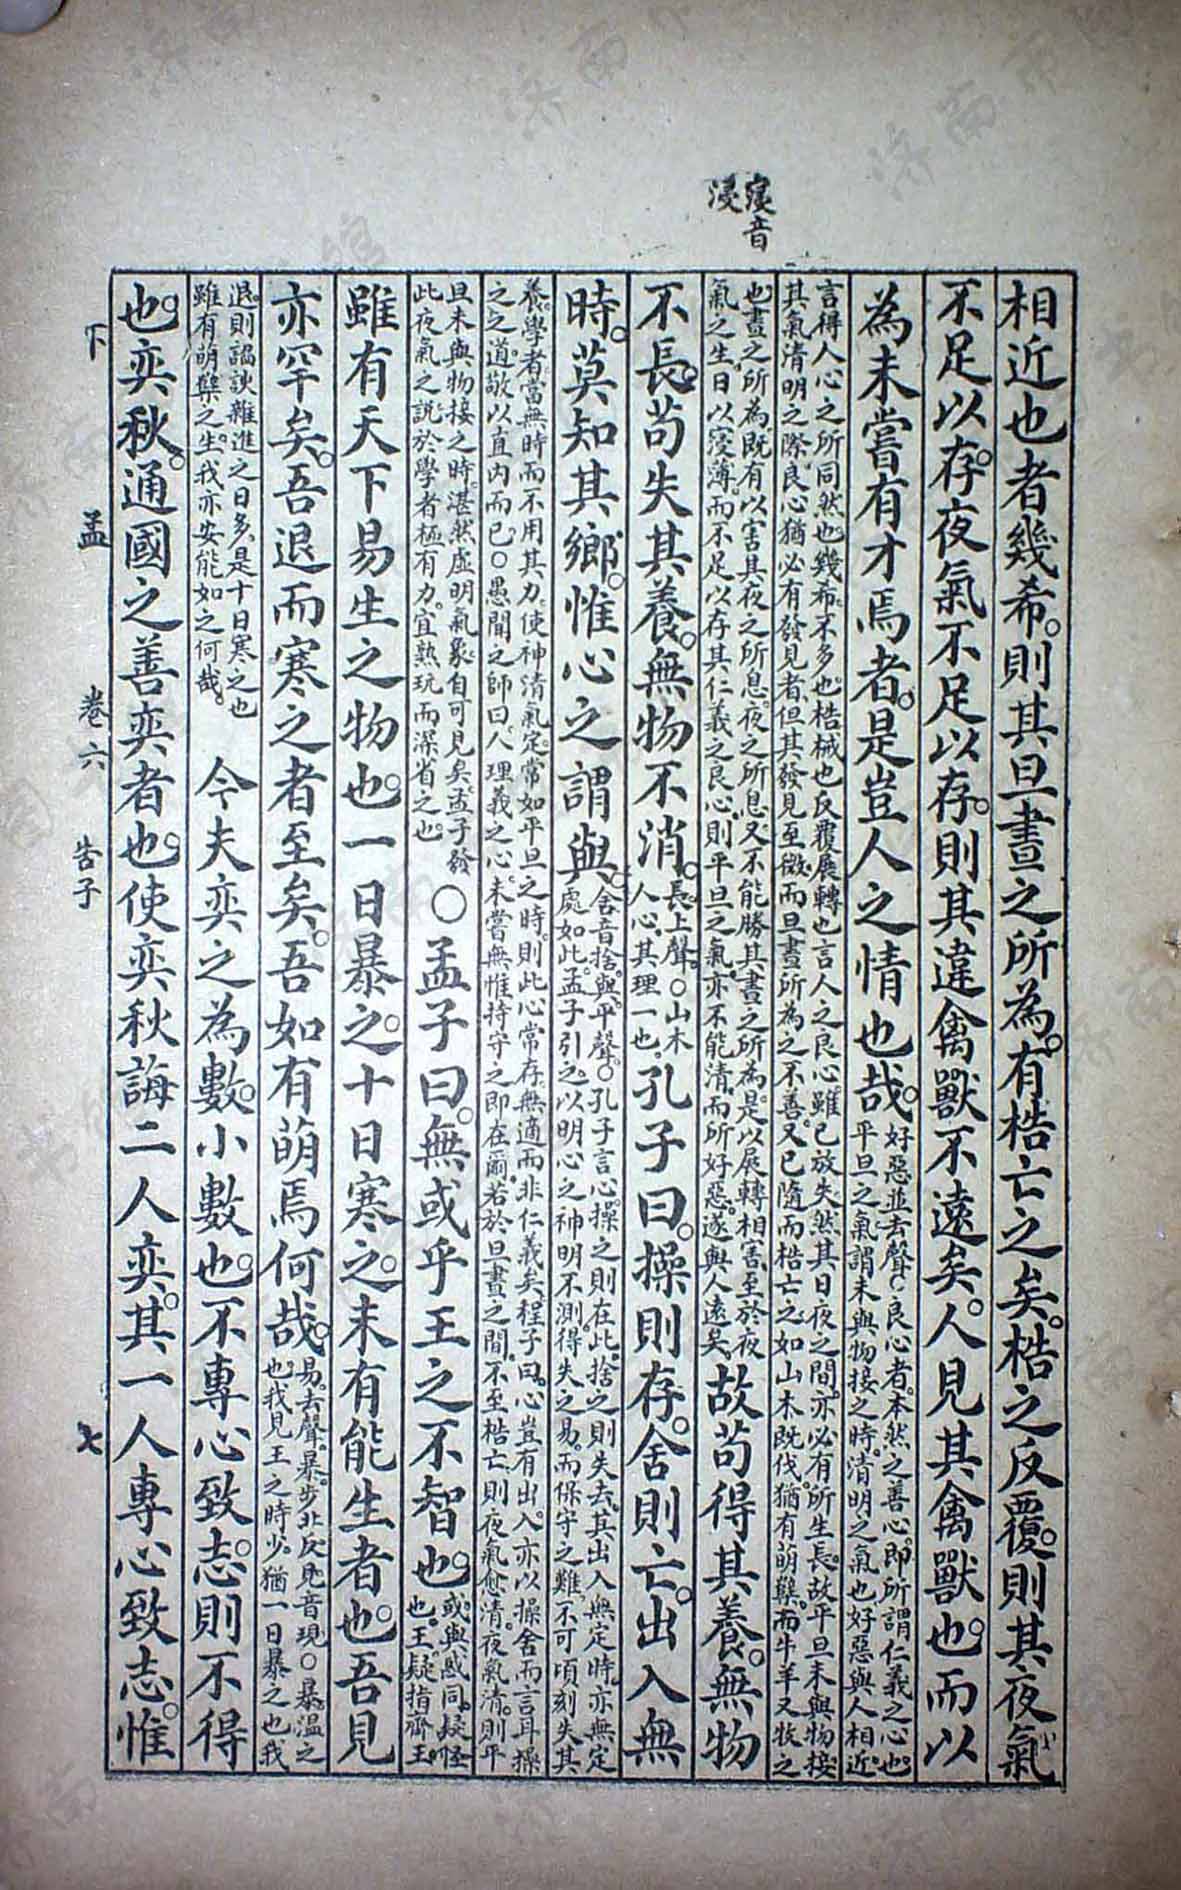 寖音
浸
相近也者幾希。則其旦晝之所為。有梏亡之矣。梏之反覆。則其夜氣
不足以存。夜氣不足以存。則其違禽獸不遠矣。人見其禽獸也。而以
為未嘗有才焉者。是豈人之情也哉。好惡並去聲○良心者。本然之善心。即所謂仁義之心也。
平旦之氣。謂未與物接之時。清明之氣也。好惡與人相近。
言得人心之所同然也。幾希。不多也。梏械也。反覆展轉也。言人之良心雖已放失。然其日夜之間。亦必有所生長。故平旦未與物接。
其氣清明之際。良心猶必有發見者。但其發見至微。而旦晝所為之不善。又已隨而梏亡之。如山木既伐。猶有萌櫱。而牛羊又牧之
也。晝之所為。既有以害其夜之所息。夜之所息。又不能勝其晝之所為。是以展轉相害。至於夜
氣之生。日以寖薄。而不足以存其仁義之良心。則平旦之氣。亦不能清。而所好惡。遂與人遠矣。故苟得其養。無物
不長。苟失其養。無物不消。長。上聲。○山木
人心。其理一也。孔子曰。操則存。舍則亡。出入無
時。莫知其鄉。惟心之謂與。舍音捨。與。平聲。○孔子言心。操之則在此。捨之則失去。其出入無定時。亦無定
處如此。孟子引之。以明心之神明不測。得失之易。而保守之難。不可頃刻失其
養。學者當無時而不用其力。使神清氣定。常如平旦之時。則此心常存。無適而非仁義矣。程子曰。心豈有出入。亦以操舍而言耳。操
之之道。敬以直內而已。○愚聞之師曰。人理義之心。未嘗無。惟持守之即在爾。若於旦晝之間。不至梏亡。則夜氣愈清。夜氣清。則平
旦未與物接之時。湛然虛明氣象。自可見矣。孟子發
此夜氣之說。於學者極有力。宜熟玩而深省之也。○孟子曰。無或乎王之不智也。或與惑同。疑怪
也。王。疑指齊王。
雖有天下易生之物也。一日暴之。十日寒之。未有能生者也。吾見
亦罕矣。吾退而寒之者至矣。吾如有萌焉何哉。易。去聲。暴。步卜反。見音現。○暴。溫之
也。我見王之時少。猶一日暴之也。我
退。則諂諛雜進之日多。是十日寒之也
雖有萌櫱之生。我亦安能如之何哉。今夫奕之為數。小數也。不專心致志。則不得
也。奕秋。通國之善奕者也。使奕秋誨二人奕。其一人專心致志。惟
下 孟 卷六 告子 七